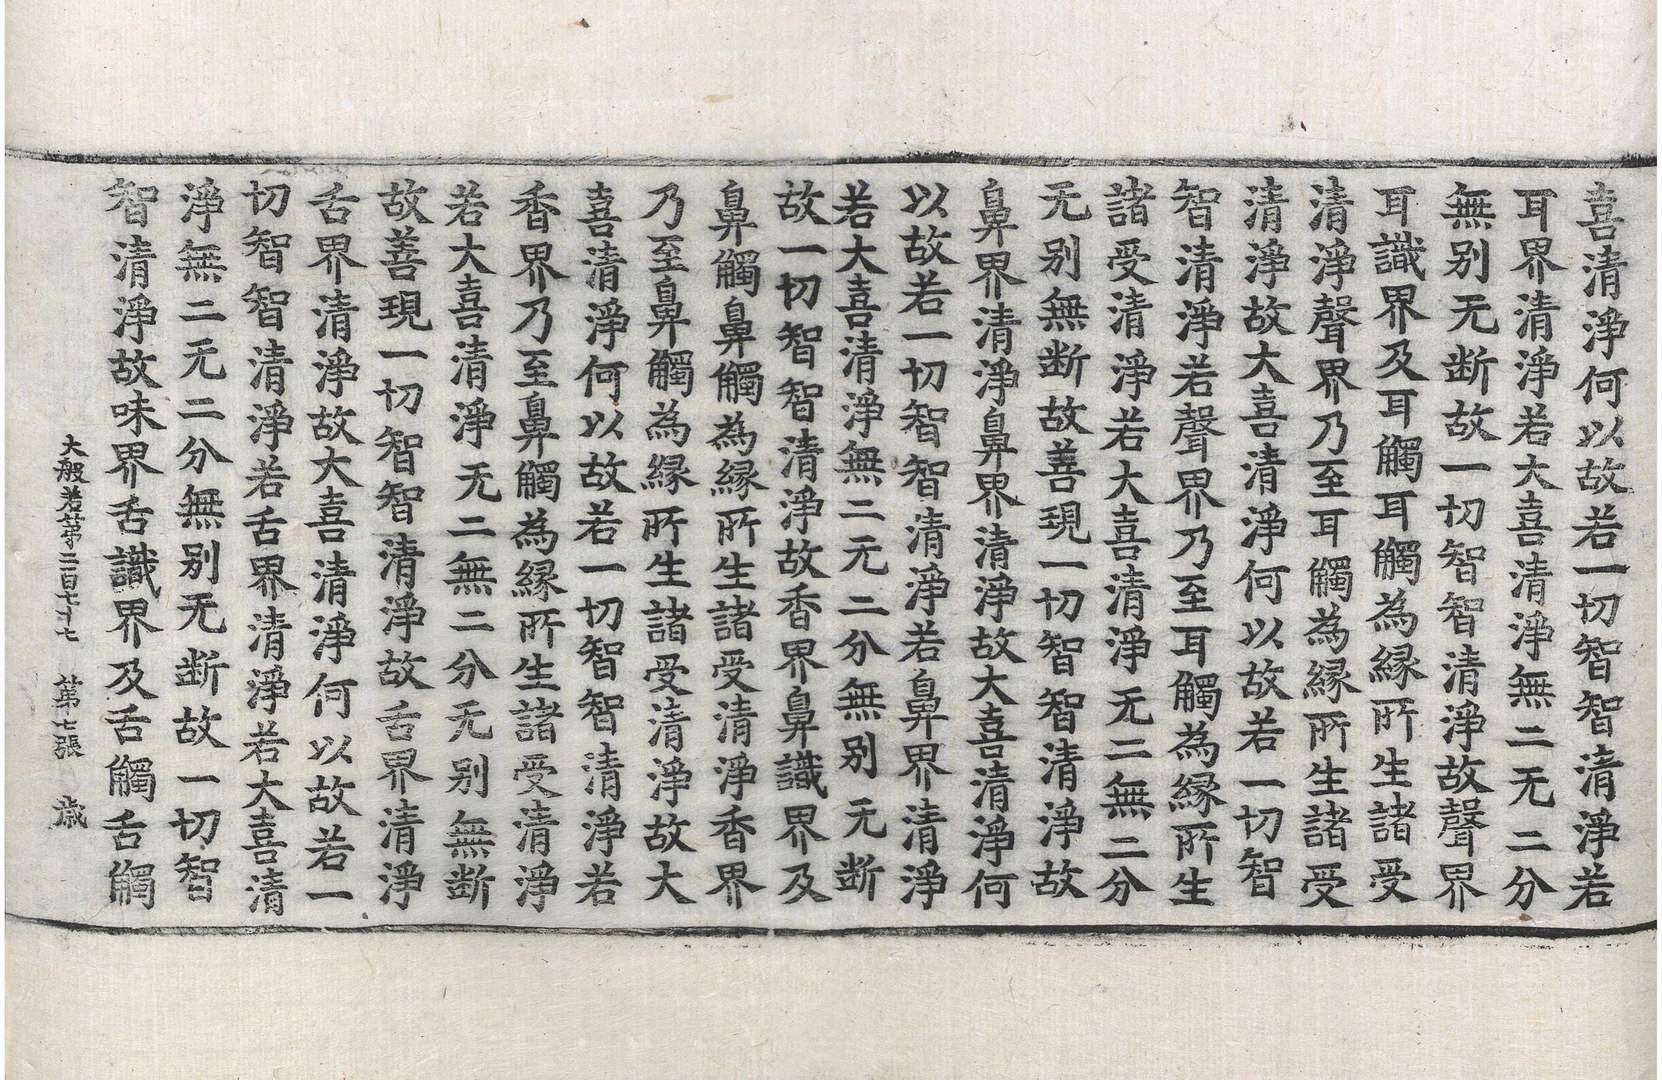 喜清淨何以故若一切智智清淨若
耳界清淨若大喜清淨無二无二分
無别无断故一切智智清淨故聲界
耳識界及耳觸耳觸為縁所生諸受
清淨聲界乃至耳觸為縁所生諸受
清淨故大喜清淨何以故若一切智
智清淨若聲界乃至耳觸為縁所生
諸受清淨若大喜清淨无二無二分
无别無断故善現一切智智清淨故
鼻界清淨鼻界清淨故大喜清淨何
以故若一切智智清淨若鼻界清淨
若大喜清淨無二无二分無别无断
故一切智智清淨故香界鼻識界及
鼻觸鼻觸為縁所生諸受清淨香界
乃至鼻觸為縁所生諸受清淨故大
喜清淨何以故若一切智智清淨若
香界乃至鼻觸為縁所生諸受清淨
若大喜清淨无二無二分无别無断
故善現一切智智清淨故舌界清淨
舌界清淨故大喜清淨何以故若一
切智智清淨若舌界清淨若大喜清
淨無二无二分無别无断故一切智
智清淨故味界舌識界及舌觸舌觸
大般若第二百七十七 第七張 歳